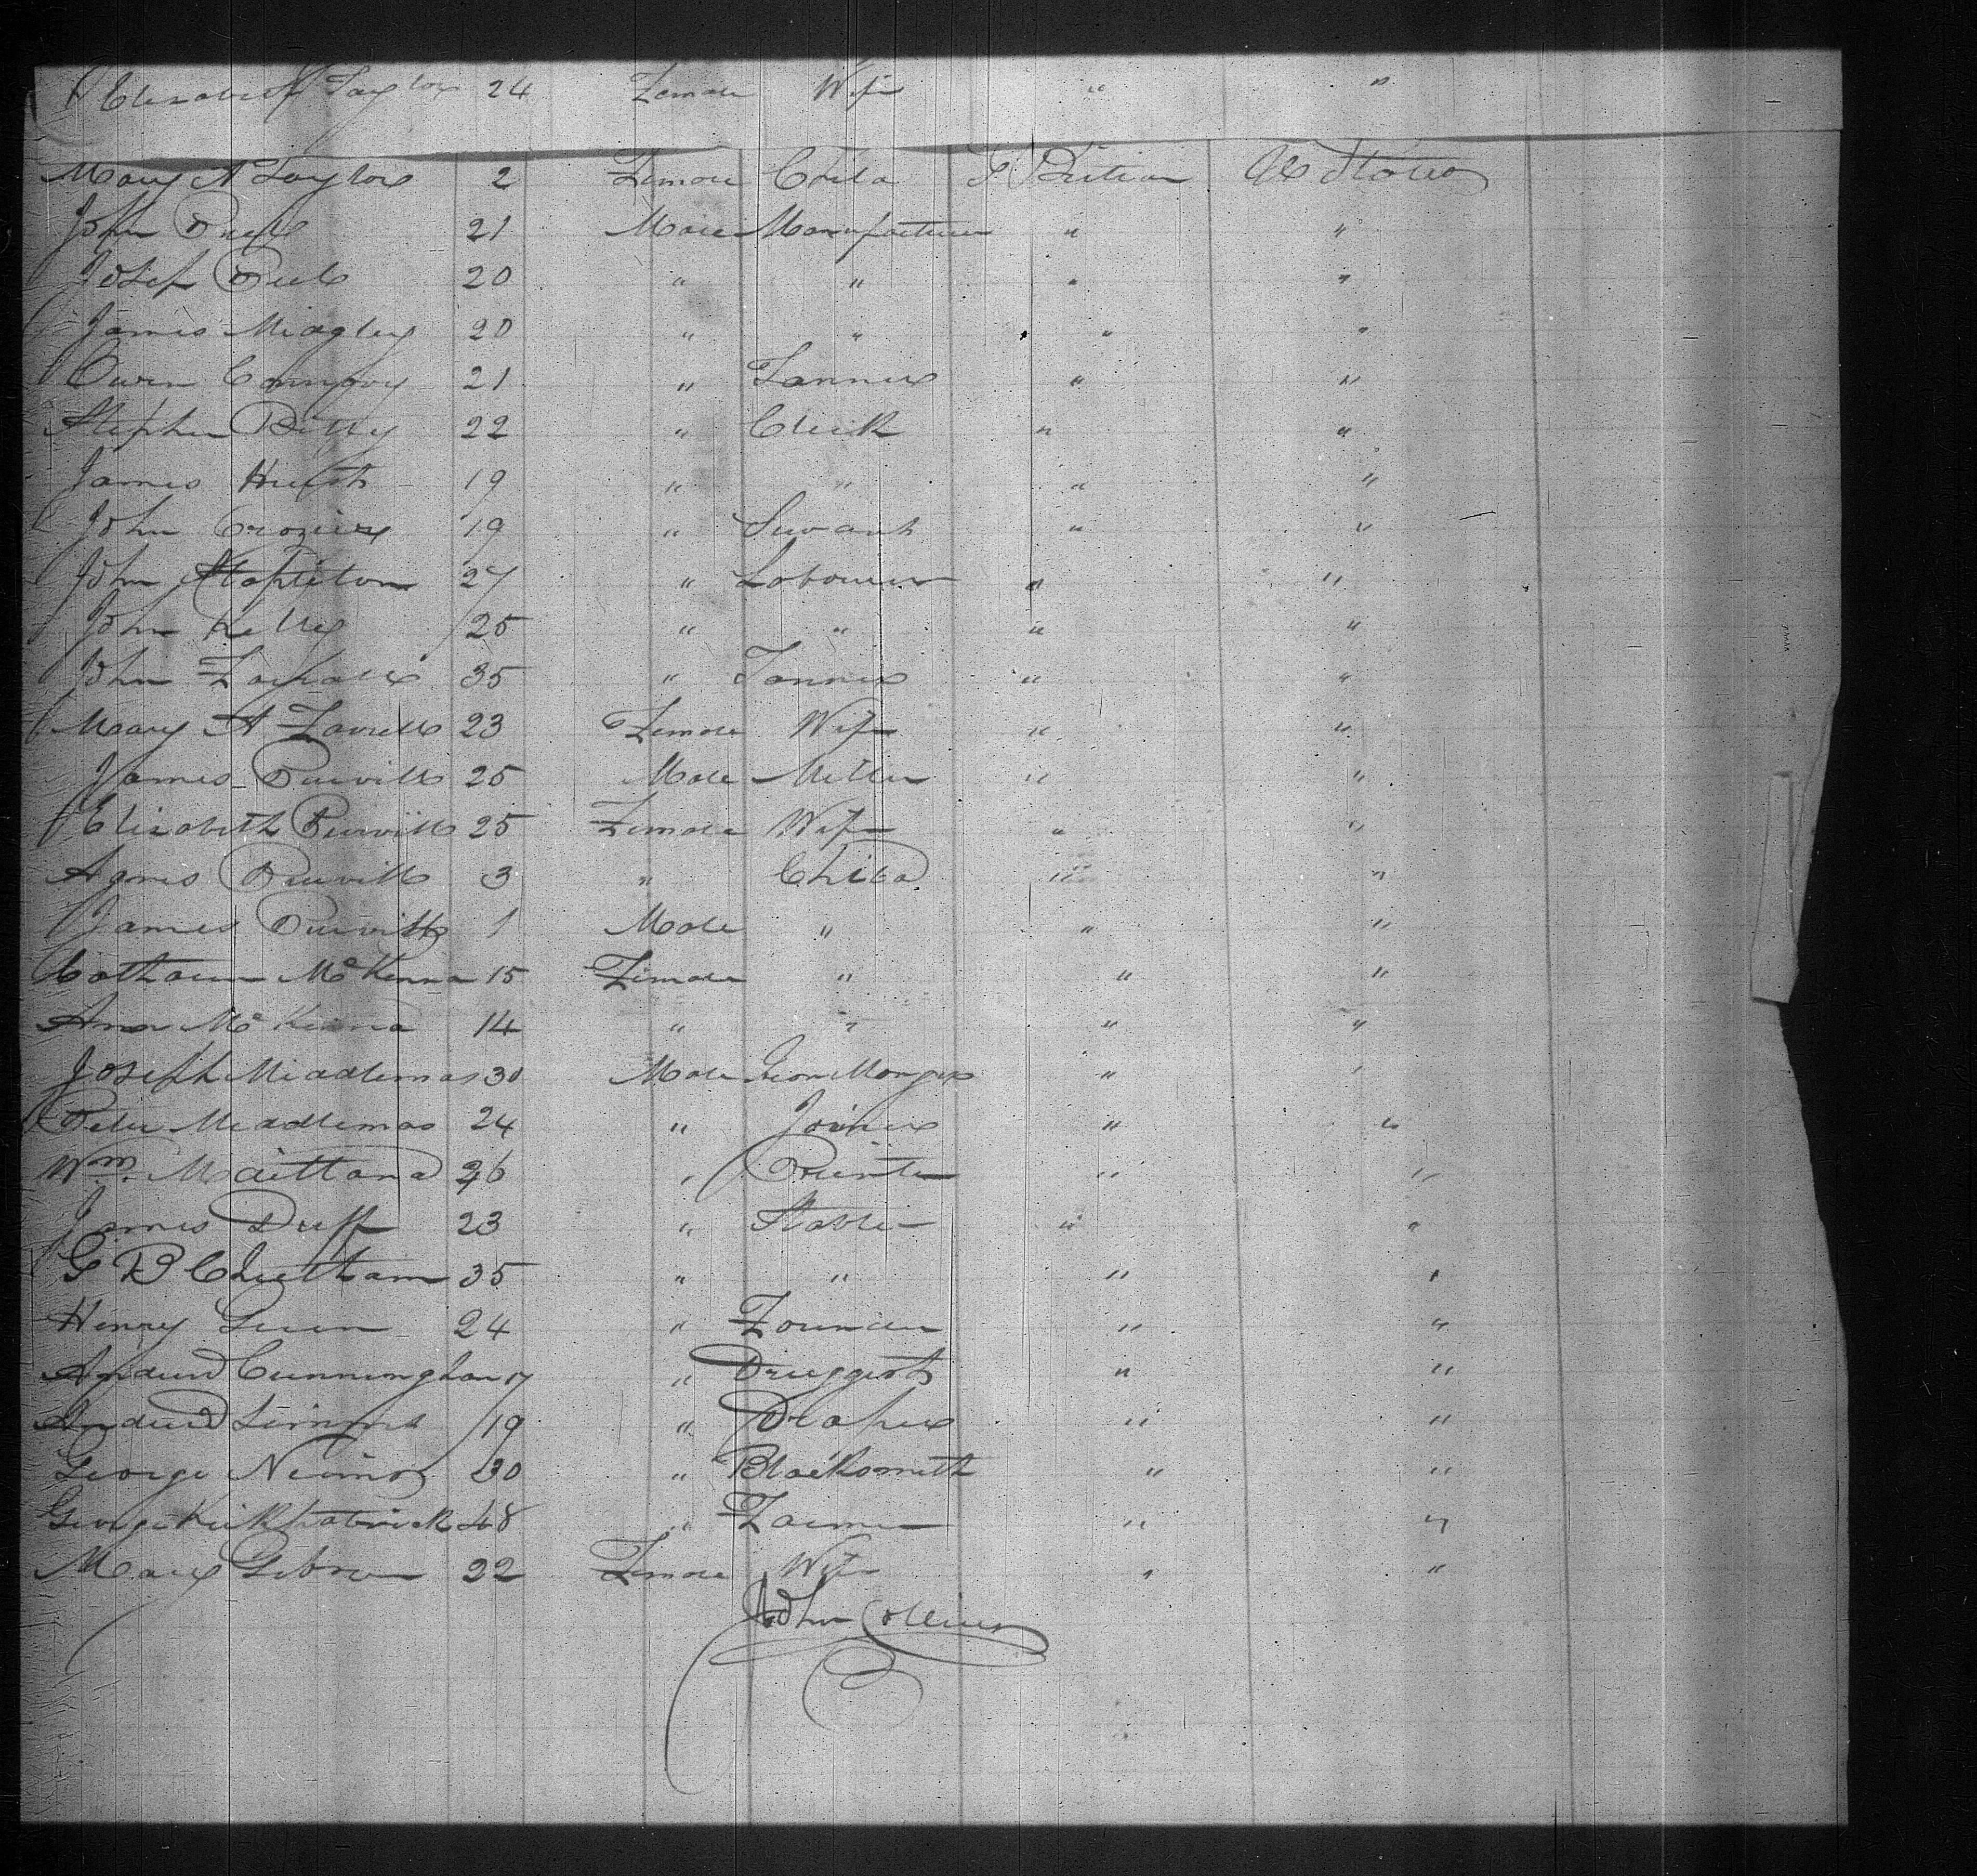 Elisabeth Taylor 24 Female Wife " "
Mary A Taylor 2 Female Child G Britian U States
John 21 Male Manufacturer " "
Josef Peel 20 " " " "
James Midgley 20 " " " "
Owen 21 " Tanner " "
Stephen 22 " Clerk " "
James Hurst 19 " " " "
John Crozier 19 " Servant " "
John Stapleton 27 " Labourer " "
John Kelly 25 " " " "
John 35 " Tanner " "
Mary A 23 Female Wife " "
James 25 Male Miller " "
Elisabeth 25 Female Wife " "
Agnes 3 " Child " "
James 1 Male " " "
McKenna 15 Female " " "
Ann McKenna 14 " " " "
Joseph Middlemas 30 Male Iron Monger " "
Peter Middlemas 24 " Joiner " "
Wm. Maitland 26 " Printer " "
James Duff 23 " Stabler " "
G B Cheetham 35 " " " "
Henry Green 24 " Founder " "
Andrew Cunningham 17 " Druggist " "
Andrew 19 " Draper " "
George 30 " Blacksmith " "
George Kirkpatrick 48 " Farmer " "
Mary Gibson 22 Female Wife " "
John Collins